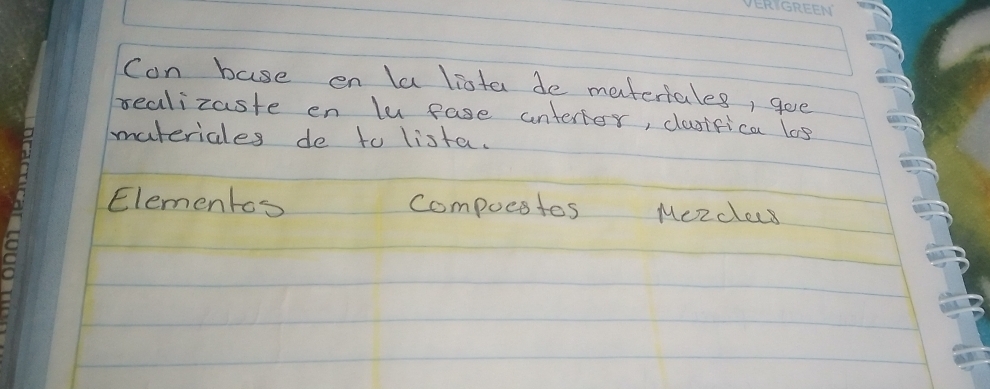 VERTGREEN
Con base en la lista de materiales, que
realizaste en la fase anterior, clasifica los
materiales de tu lista.
Elementos Compuestos Mezclas